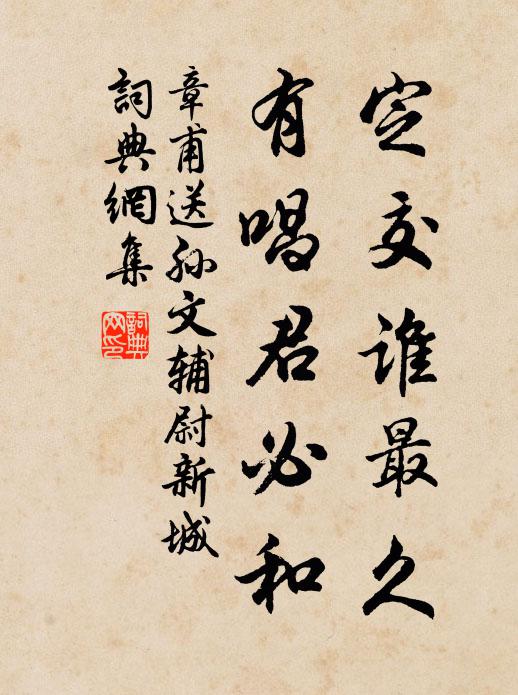 定交谁最久
有唱君必和
章甫送孙文辅尉新城
詞典網集
詞典网印